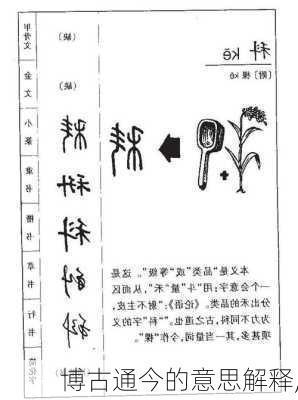 科 kē
〔附〕棵 kē
甲骨文
(缺)
金文
(缺)
小篆
科
隶书
科
楷书
科
草书
科
行书
科
简化字
本义是“品类”或“等级”。这是
一个会意字:用“斗”量“禾”,从而区
分出禾的品类。《论语》:“射不主皮,
为力不同科,古之道也。”“科”字的义
项甚多,其一当量词,今作“棵”。
博古通今的意思解释,